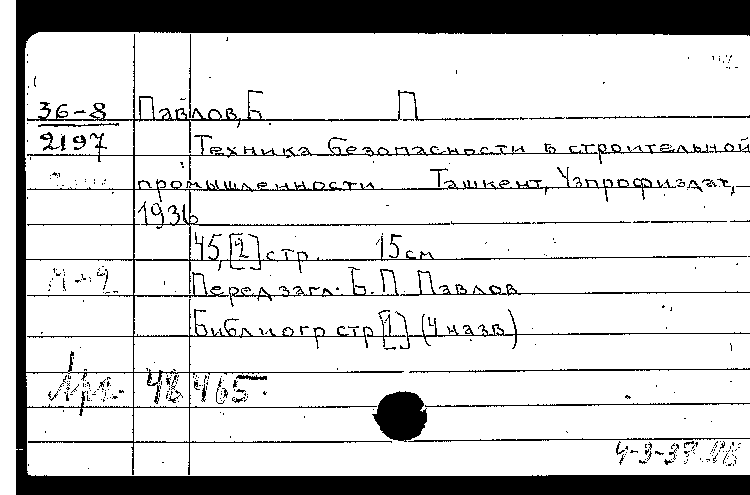 36-8 Павлов, Б. П
2197 Техника безопасности в строительной
промышленности. Ташкент, Узпрофиздат,
1936
45, [2] стр. 15 см
Перед загл.: Б. П. Павлов
Библиогр стр [1] (4 назв)
48465.
4-3-37